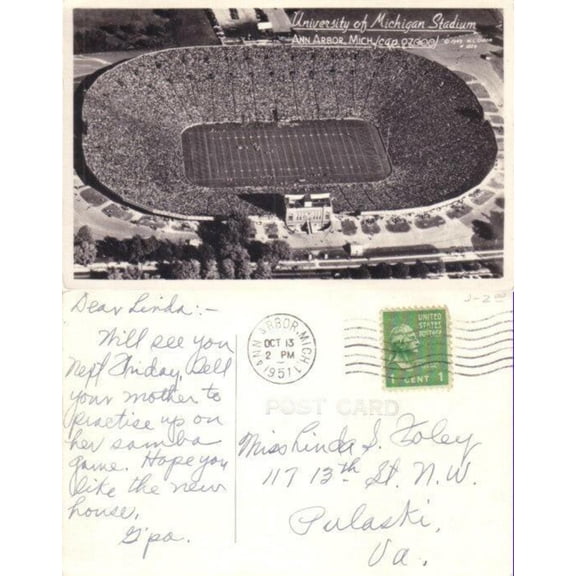 University of Michigan Stadium
ANN ARBOR, MICH. (cap. 97,000)
J-200
Dear Linda:-
Will see you
Next Friday. Tell
your mother to
practise up on
her samba
game. Hope you
like the new
house,
G'pa.
ANN ARBOR, MICH.
OCT 13
2 PM
1951
UNITED
STATES
POSTAGE
1 CENT 1
POST CARD
Miss Linda S. Foley
117 13th St. N.W.
Pulaski,
Va.